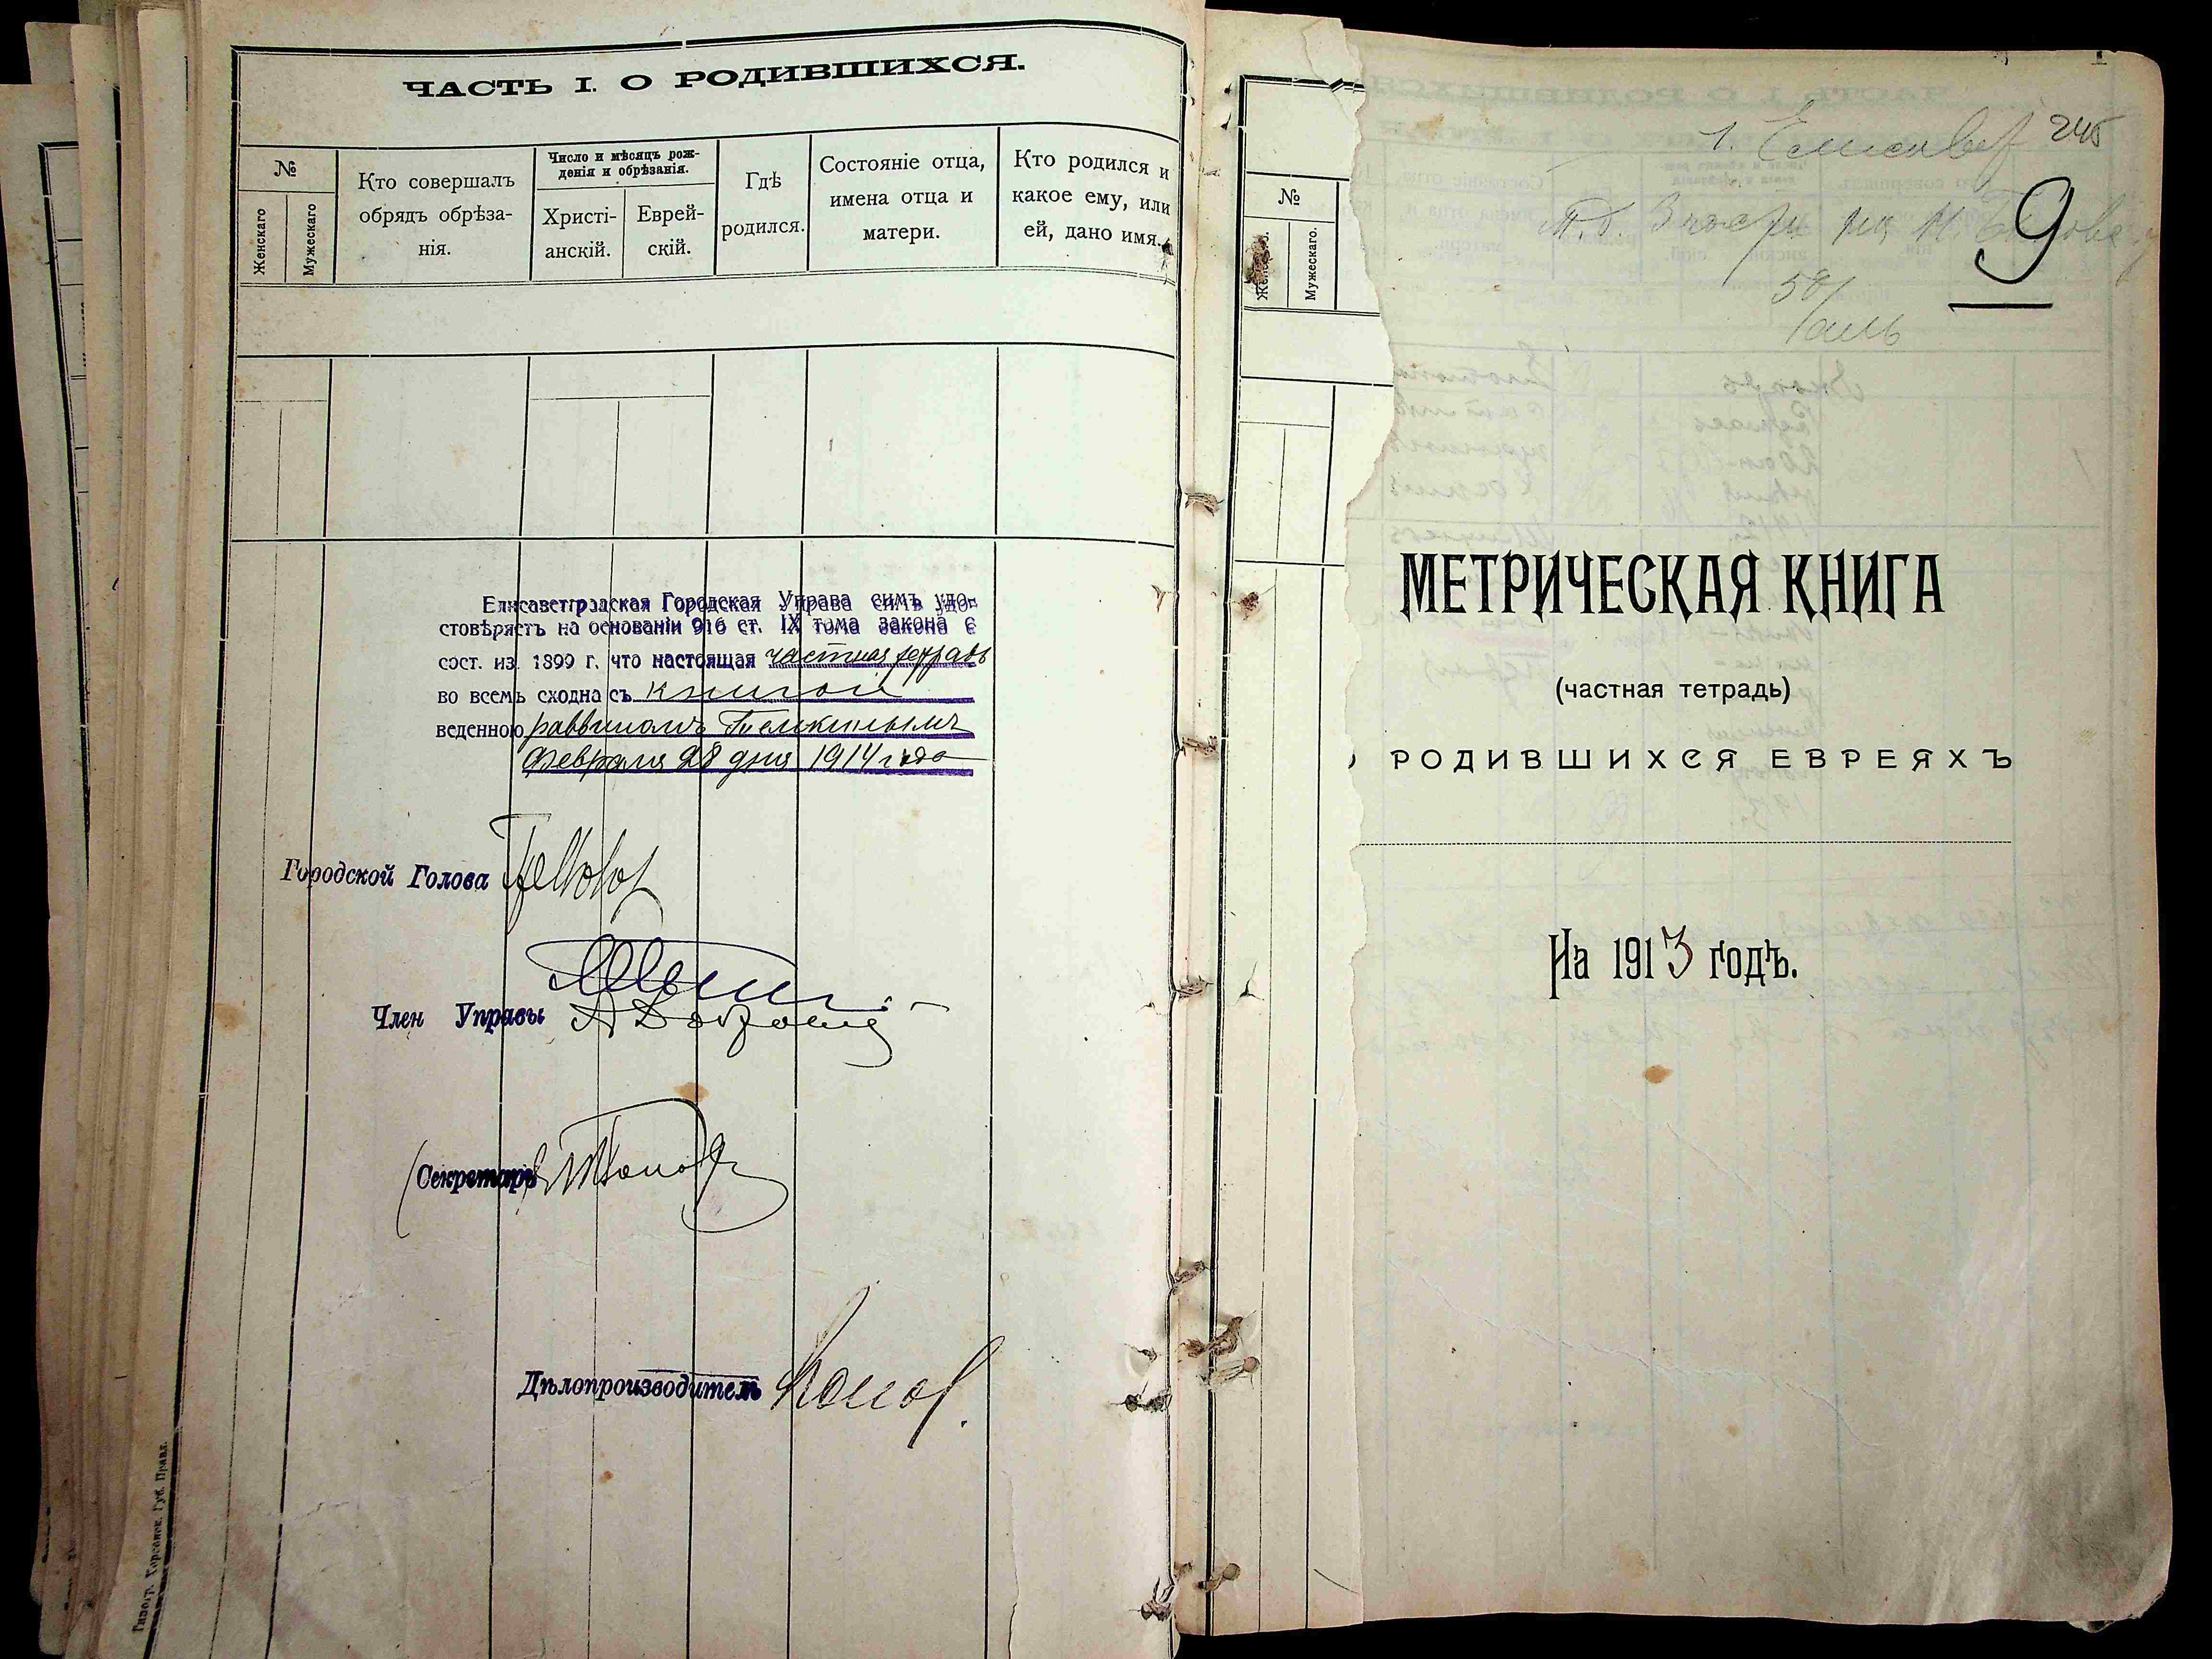 ЧАСТЬ I. О РОДИВШИХСЯ.
№
Женскаго
Мужескаго
Кто совершалъ
обрядъ обрѣза-
нія.
Число и мѣсяцъ рож-
денія и обрѣзанія.
Христі-
анскій.
Еврей-
скій.
Гдѣ
родился.
Состояніе отца,
имена отца и
матери.
Кто родился и
какое ему, или
ей, дано имя.
Елисаветградская Городская Управа симъ удо-
стовѣряетъ на основаніи 916 ст. IX тома закона с
сост. из. 1899 г. что настоящая частная тетрадь
во всемъ сходна съ книгой
веденною раввиномъ
Февраля 28 дня 1914 года
Городской Голова
Член Управы
Секретарь
Дѣлопроизводитель
Типогр. Херсонск. Губ. Правл.
№
Мужескаго.
245
9
МЕТРИЧЕСКАЯ КНИГА
(частная тетрадь)
РОДИВШИХСЯ ЕВРЕЯХЪ
На 1913 годъ.